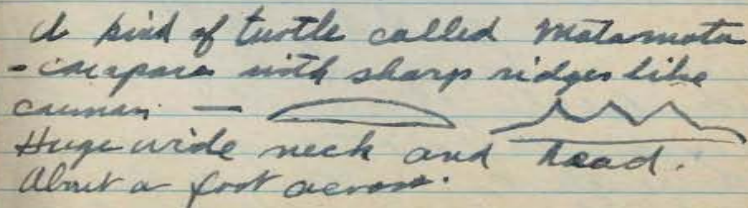 A kind of turtle called Matamata
- carapace with sharp ridges like
caiman —
Huge wide neck and head.
About a foot across.